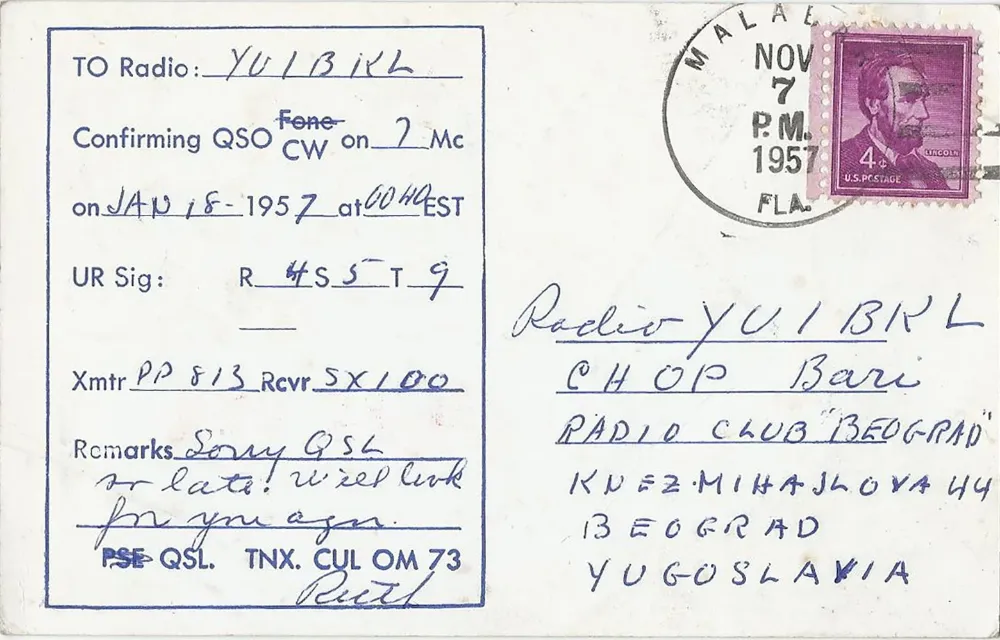 TO Radio: YU1BKL
Confirming QSO Fone CW on 7 Mc
on JAN 18- 1957 at 0040 EST
UR Sig: R 4 S 5 T 9
Xmtr PP 813 Rcvr SX100
Remarks Sorry QSL
so late! Will look
for you agn.
PSE QSL. TNX. CUL OM 73
Ruth
NOV
7
P.M.
1957
FLA.
4¢
LINCOLN
U.S. POSTAGE
Radio YU1BKL
CHOP Bari
RADIO CLUB "BEOGRAD"
KNEZ-MIHAJLOVA 44
BEOGRAD
YUGOSLAVIA